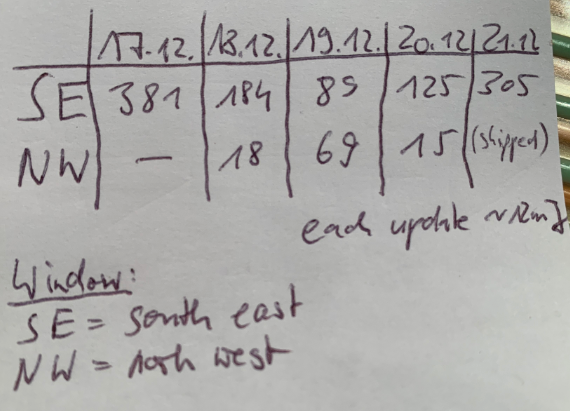 17.12. 18.12. 19.12. 20.12 21.12
SE 381 184 89 125 305
NW — 18 69 15 (shipped)
each update ~12mJ
Window:
SE = south east
NW = north west